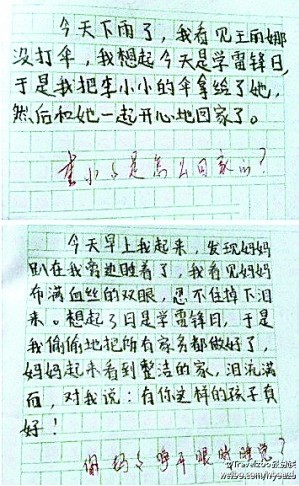 今天下雨了，我看见王雨娜
没打伞，我想起今天是学雷锋日，
于是我把李小小的伞拿给了她，
然后和她一起开心地回家了。
李小小是怎么回家的？
今天早上我起来，发现妈妈
趴在我旁边睡着了，我看见妈妈
布满血丝的双眼，忍不住掉下泪
来。想起3日是学雷锋日，于是
我偷偷地把所有家务都做好了，
妈妈起来看到整洁的家，泪流满
面，对我说：有你这样的孩子真
好！
你妈妈睁开眼睛睡觉？